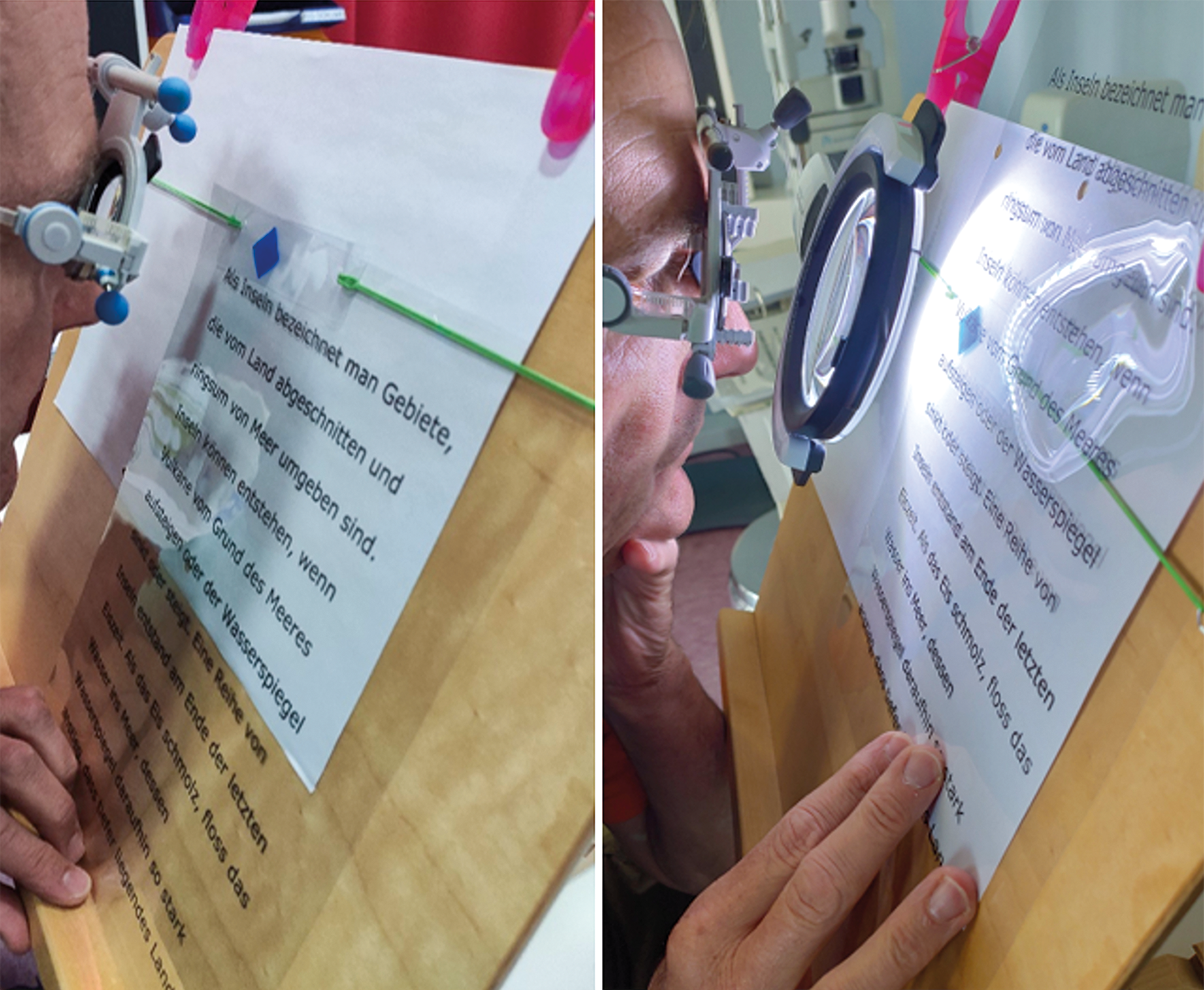 Als Inseln bezeichnet man Gebiete,
die vom Land abgeschnitten und
ringsum von Meer umgeben sind.
Inseln können entstehen, wenn
Vulkane vom Grund des Meeres
aufsteigen oder der Wasserspiegel
sinkt oder steigt. Eine Reihe von
Inseln entstand am Ende der letzten
Eiszeit. Als das Eis schmolz, floss das
Wasser ins Meer, dessen
Wasserspiegel daraufhin so stark
dass tiefer liegendes Land
Als Inseln bezeichnet man
die vom Land abgeschnitten
ringsum von Meer umgeben sind
Inseln können entstehen, wenn
Vulkane vom Grund des Meeres
aufsteigen oder der Wasserspiegel
sinkt oder steigt. Eine Reihe von
Inseln entstand am Ende der letzten
Eiszeit. Als das Eis schmolz, floss das
Wasser ins Meer, dessen
Wasserspiegel daraufhin so stark